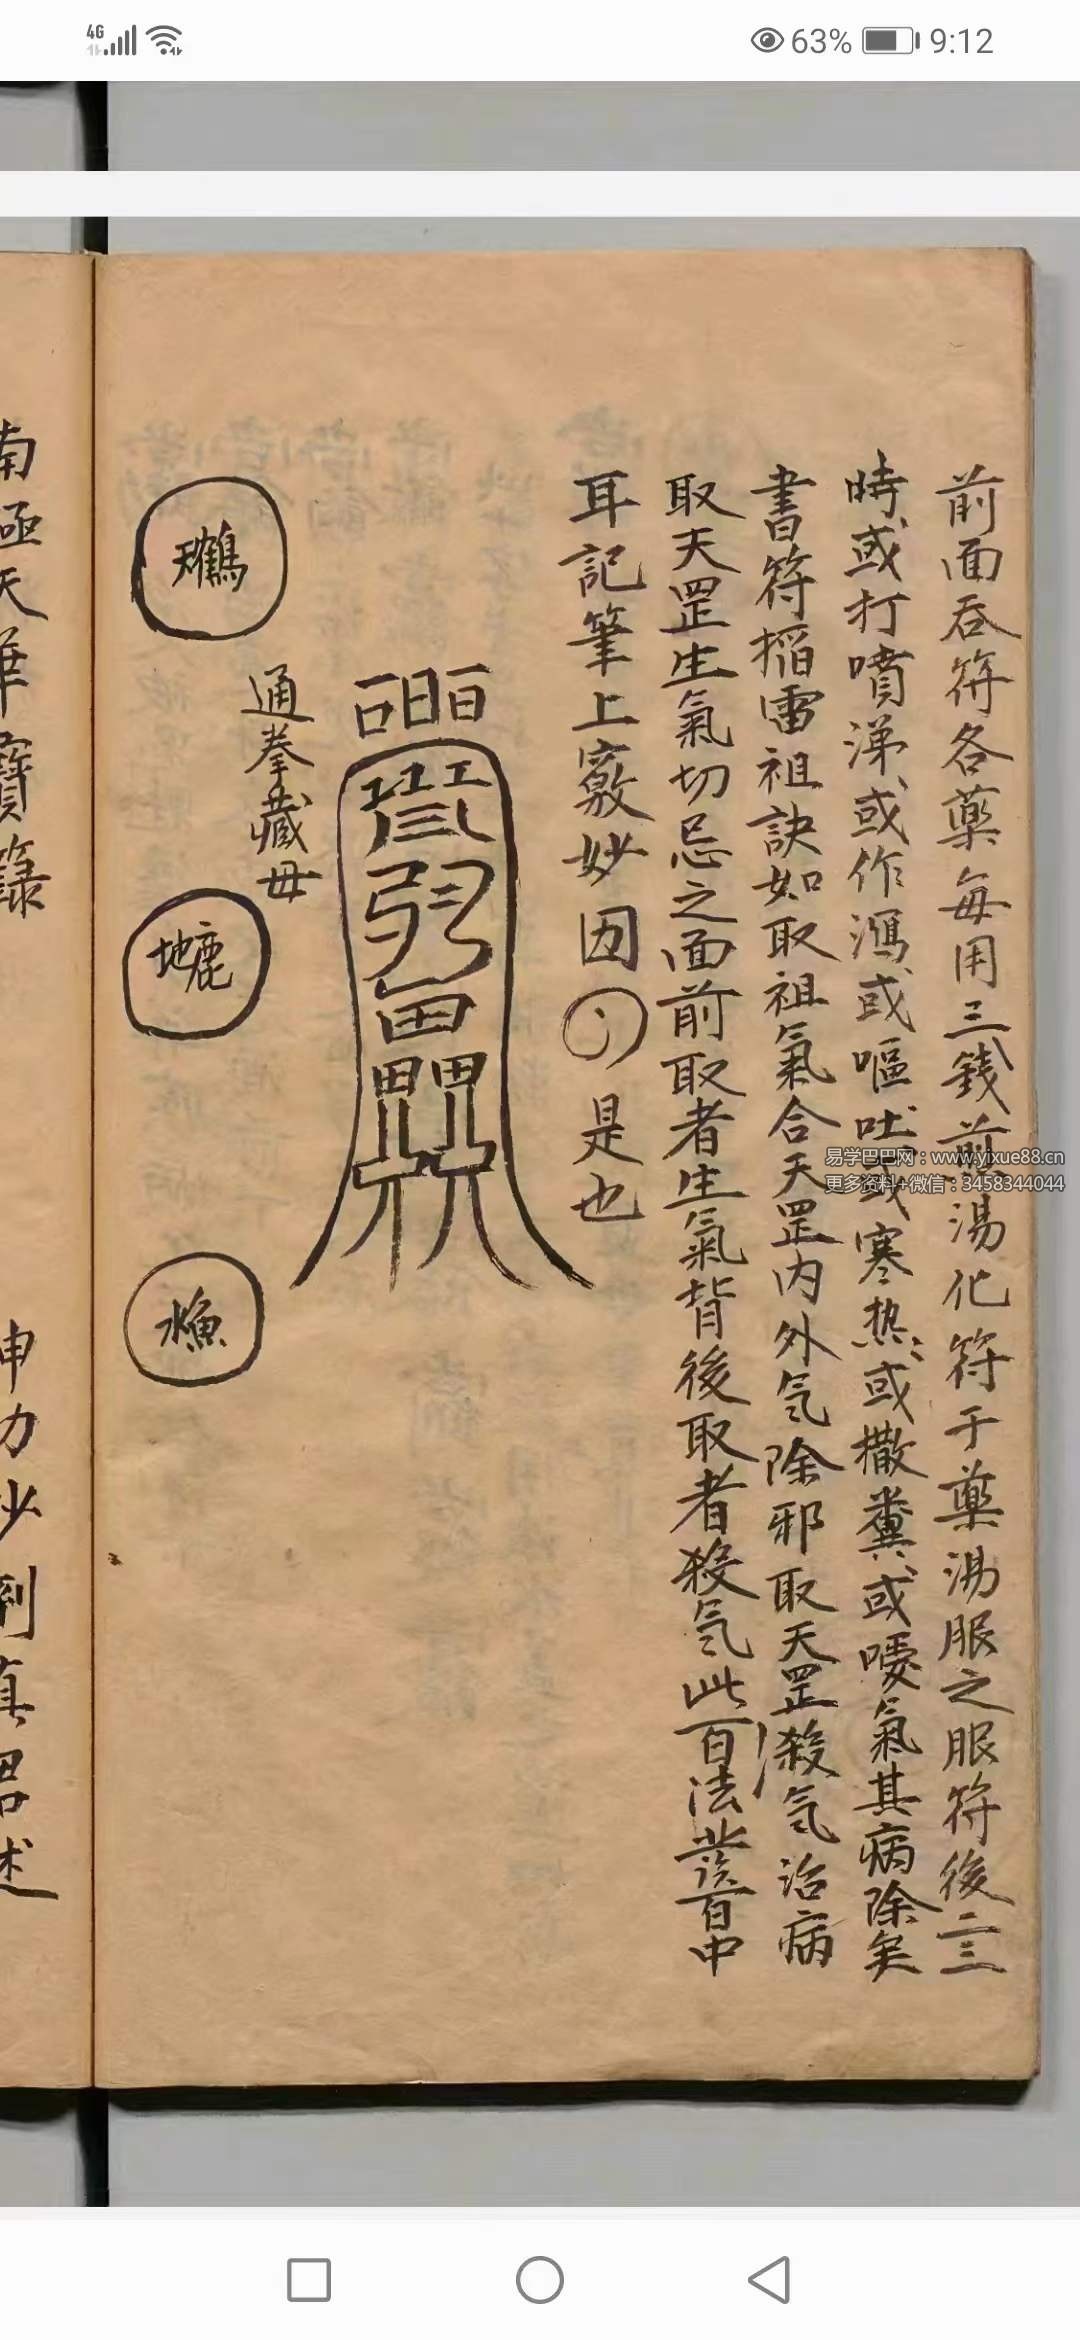 4G
63%
9:12
前面吞符各藥每用三錢煎湯化符于藥湯服之服符後二三
時或打噴涕或作瀉或嘔吐或寒热或撒糞或噯氣其病除矣
書符搯雷祖訣如取祖氣合天罡内外気除邪取天罡殺気治病
取天罡生氣切忌之面前取者生氣背後取者殺気此百法百發百中
耳記筆上竅妙因是也
通拳藏毋
天鶴
地鹿
水魚
南極天華寶籙
神力妙到真君述
易学巴巴网：www.yixue88.cn
更多资料+微信：3458344044